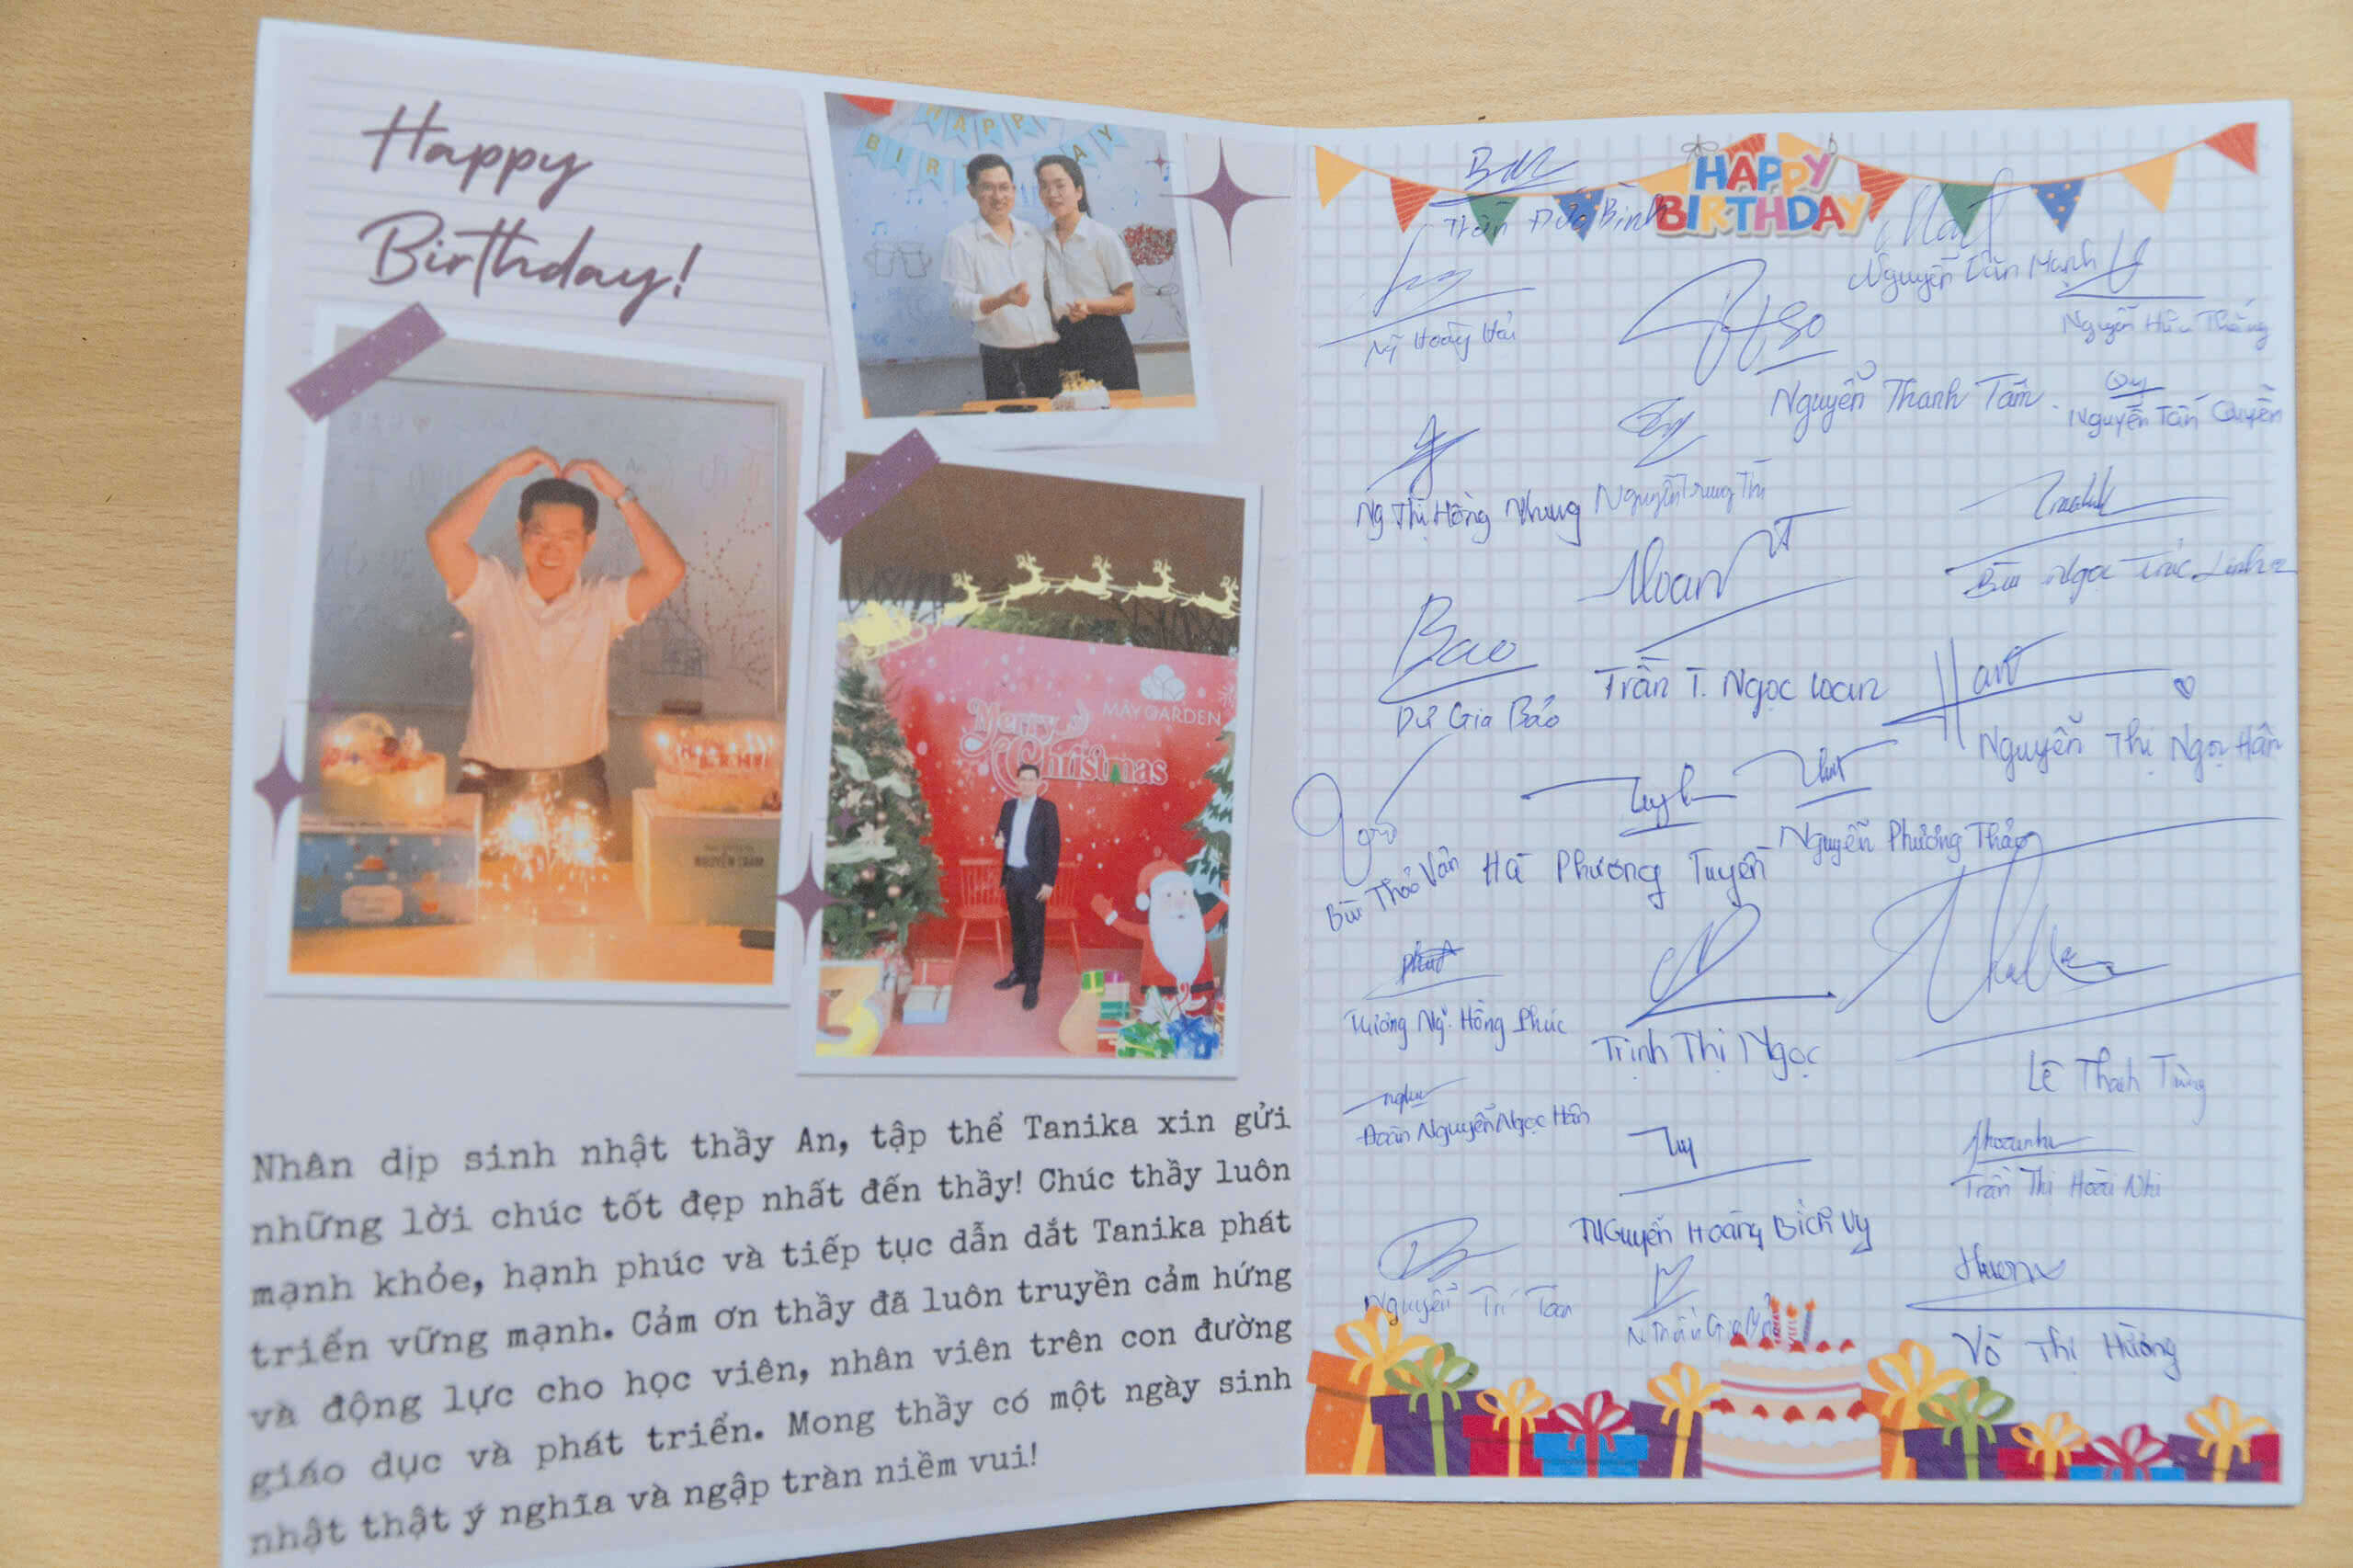 Happy
Birthday!
HAPPY
BIRTHDAY
NGUYỄN
MÂY GARDEN
Merry
Christmas
3
Nhân dịp sinh nhật thầy An, tập thể Tanika xin gửi
những lời chúc tốt đẹp nhất đến thầy! Chúc thầy luôn
mạnh khỏe, hạnh phúc và tiếp tục dẫn dắt Tanika phát
triển vững mạnh. Cảm ơn thầy đã luôn truyền cảm hứng
và động lực cho học viên, nhân viên trên con đường
giáo dục và phát triển. Mong thầy có một ngày sinh
nhật thật ý nghĩa và ngập tràn niềm vui!
HAPPY
BIRTHDAY
Đức Bình
Nguyễn Văn Mạnh
Nguyễn Hữu Thắng
Hoàng Hải
Nguyễn Thanh Tâm
Nguyễn Tấn Quyền
Ng Thị Hồng Nhung
Nguyễn Trung Thi
Bùi Ngọc Trúc Linh
Loan
Bao
Dư Gia Bảo
Trần T. Ngọc Loan
Han
Nguyễn Thị Ngọc Hân
Bùi Thảo Vân
Hà Phương Tuyền
Nguyễn Phương Thảo
Trương Ng. Hồng Phúc
Trịnh Thị Ngọc
Lê Thanh Tùng
Đoàn Nguyễn Ngọc Hân
Trần Thị Hoài Nhi
Nguyễn Hoàng Bích Vy
Nguyễn Trí Tan
Huong
Võ Thị Hường